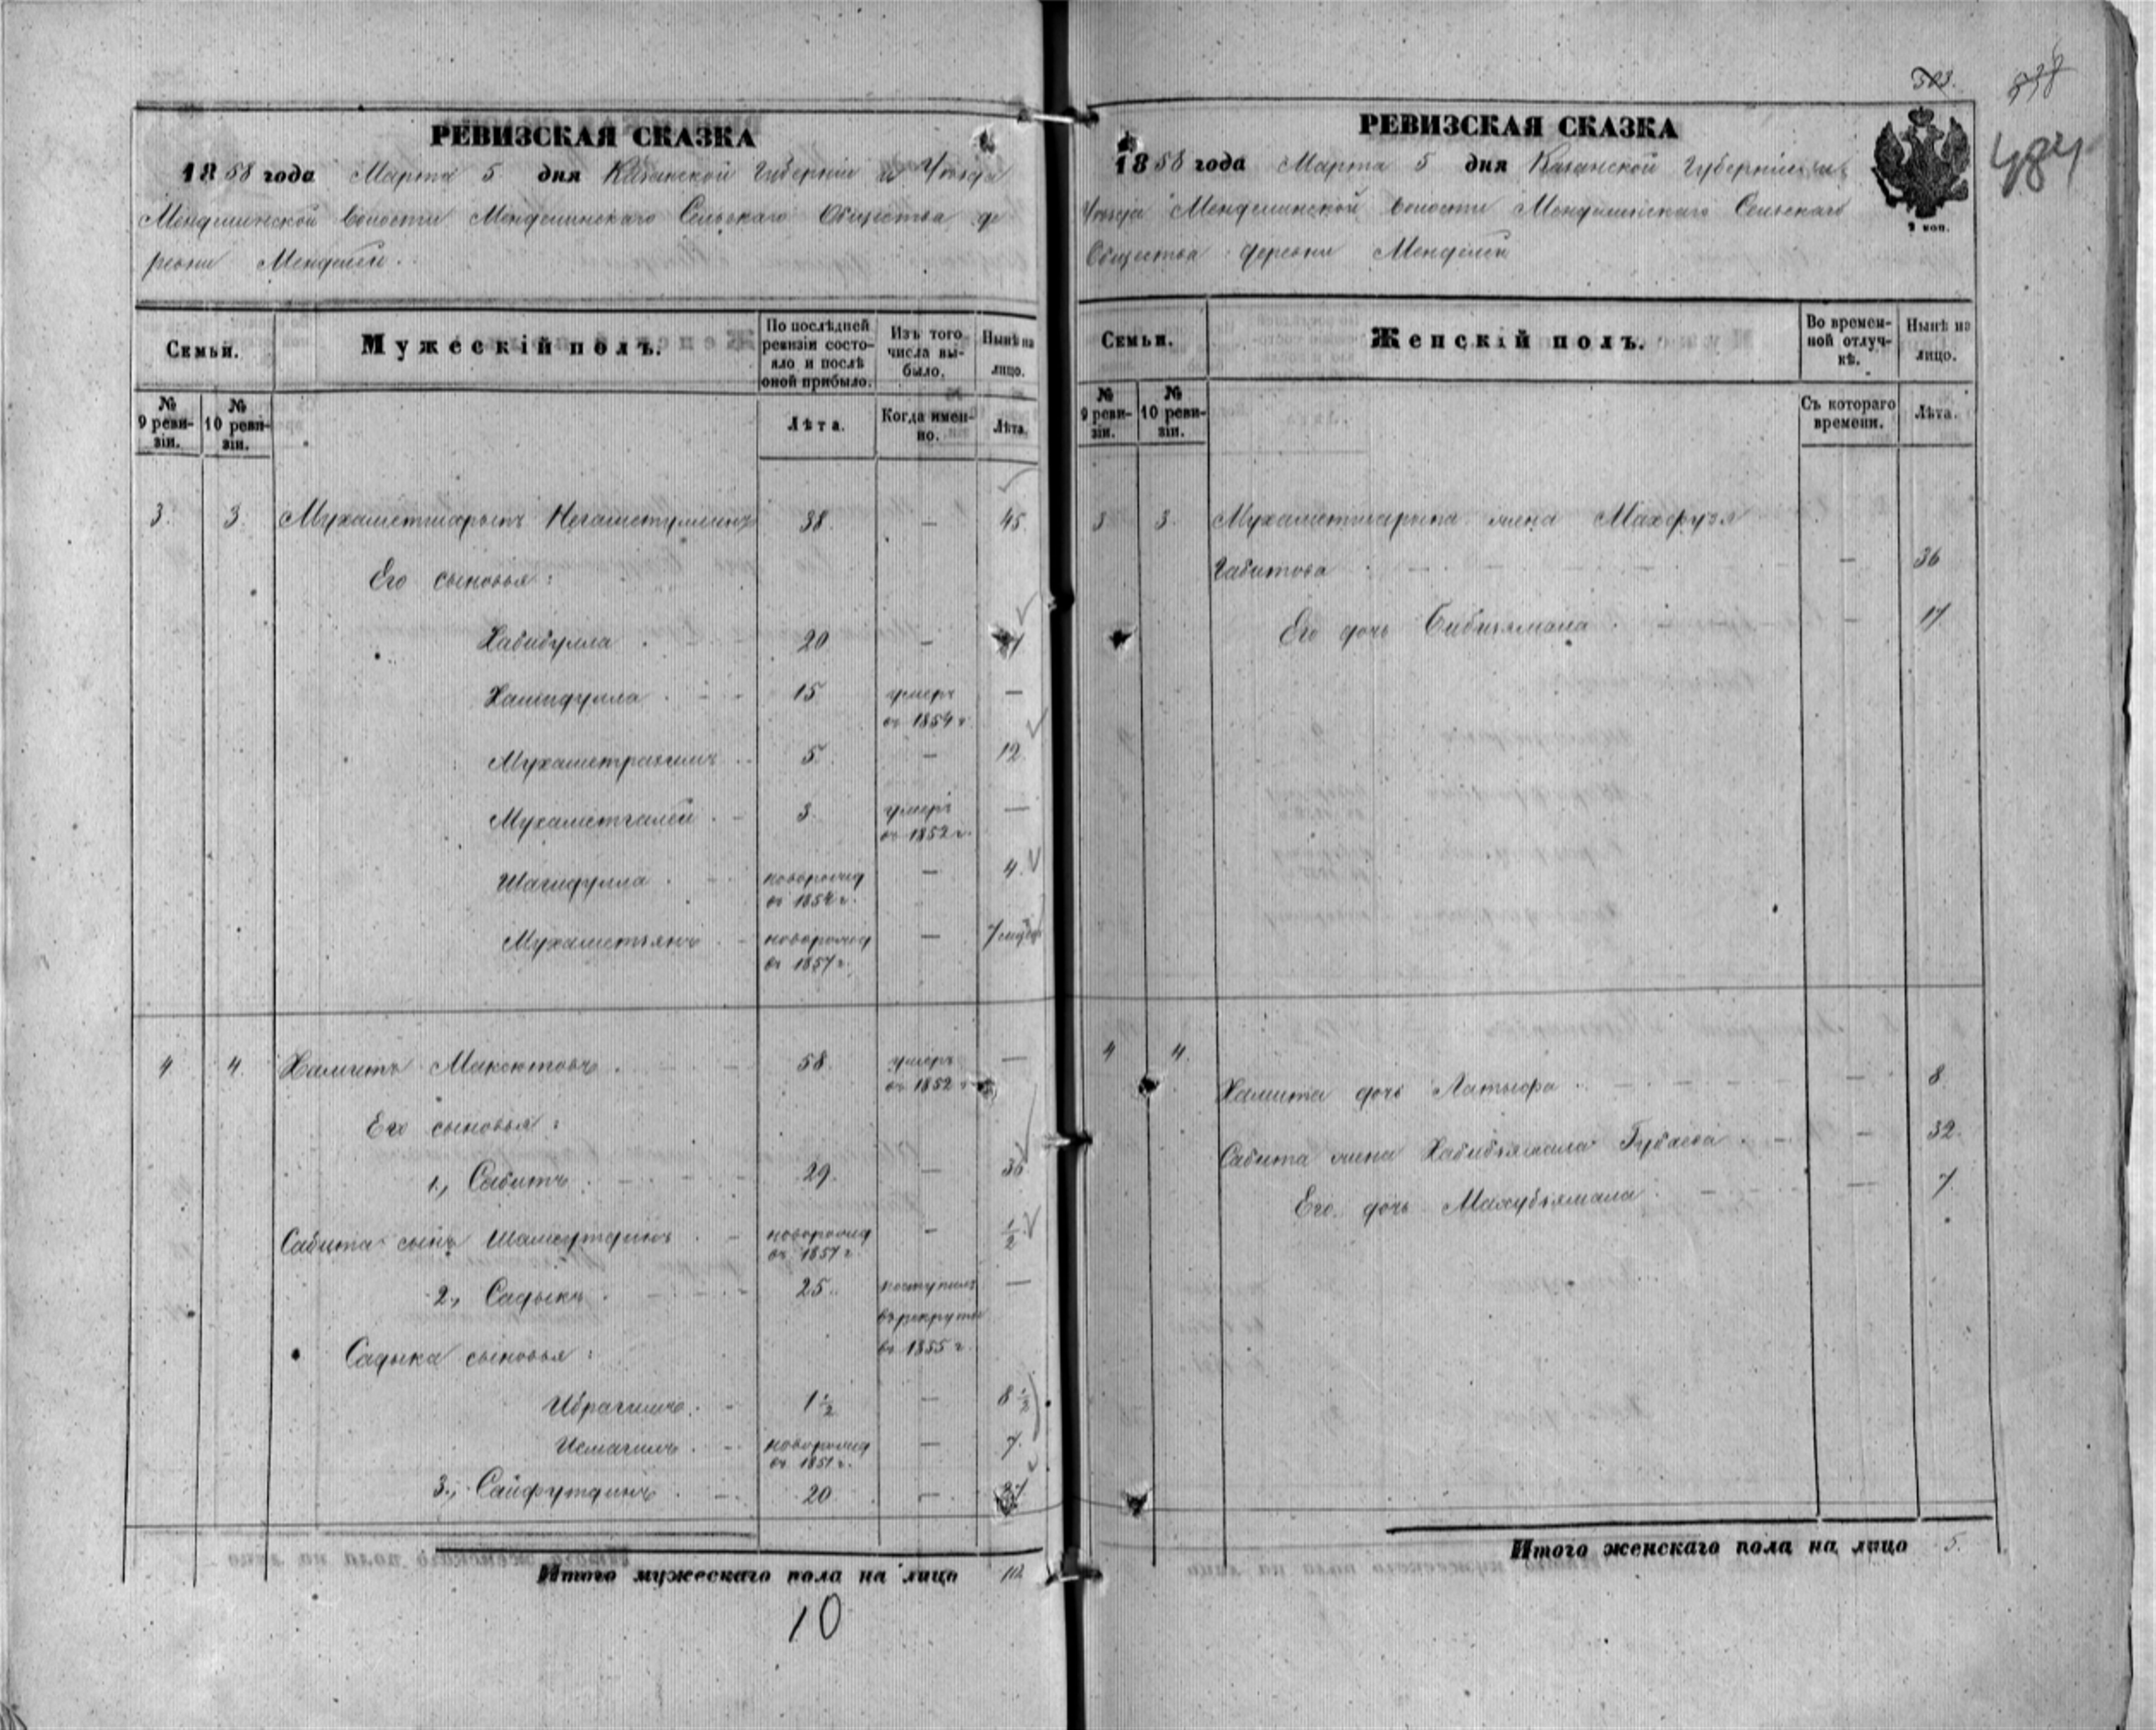 РЕВИЗСКАЯ СКАЗКА
1858 года Марта 5 дня Казанской Губерніи и Уѣзда
Мендѣлинской Волости Мендѣлинскаго Сельскаго Общества де
ревни Мендѣли.
Семьи.
Мужескій полъ.
По послѣдней ревизіи состояло и послѣ оной прибыло.
Изъ того числа выбыло.
Нынѣ на лицо.
№ 9 ревизіи.
№ 10 ревизіи.
Лѣта.
Когда именно.
Лѣта.
3. 3. Мухаметшарыпъ 38. — 45.
Его сыновья:
Хабибулла 20 —
15 умеръ —
въ 1854 г.
Мухаметрахимъ 5. — 12.
Мухаметгалей 3. умеръ —
въ 1852 г.
Шагидулла новорожд — 4.
въ 1854 г.
Мухаметзянъ новорожд —
въ 1857 г.
4 4. Хамитъ Максютовъ 58. умеръ —
въ 1852 г.
Его сыновья:
1., Сабитъ 29. — 36
Сабита сынъ Шамсутдинъ новорожд — 1/2
въ 1857 г.
2., Садыкъ 25. поступилъ —
въ рекруты
въ 1855 г.
Садыка сыновья:
Ибрагимъ 1 1/2 — 8 1/2
Исмагилъ новорожд — 7.
въ 1851 г.
3., Сайфутдинъ 20. — 27
Итого мужескаго пола на лицо 10
10
503.
484
РЕВИЗСКАЯ СКАЗКА
1858 года Марта 5 дня Казанской Губерніи и
Уѣзда Мендѣлинской Волости Мендѣлинскаго Сельскаго
Общества деревни Мендѣли
2 коп.
Семьи.
Женскій полъ.
Во временной отлучкѣ.
Нынѣ на лицо.
№ 9 ревизіи.
№ 10 ревизіи.
Съ котораго времени.
Лѣта.
3 3. Мухаметшарыпа жена Махфузя
Габитова — 36
Его дочь Бибизямала — 17
4 4.
Хамита дочь Латыфа — 8.
Сабита жена Хабибзямала Губаева — 32.
Его дочь Махубзямала — 7.
Итого женскаго пола на лицо 5.